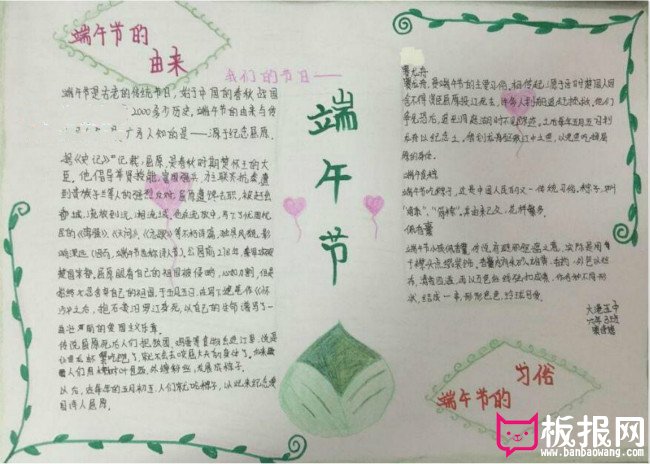 端午节的
由来
我们的节日——
端午节
端午节是古老的传统节日,始于中国的春秋战国
2000多年历史,端午节的由来与传
广为人知的是——源于纪念屈原。
据《史记》记载,屈原,是春秋时期楚怀王的大
臣。他倡导举贤授能,富国强兵,力主联齐抗秦,遭
到贵族子兰等人的强烈反对,屈原遭馋去职,被赶出
都城,流放到沅、湘流域。他在流放中,写下了忧国忧民
的《离骚》、《天问》、《九歌》等不朽诗篇,独具风貌,影
响深远(因而,端午节也称诗人节)。公元前278年,秦军攻破
楚国京都。屈原眼看自己的祖国被侵略,心如刀割,但是
始终不忍舍弃自己的祖国,于五月五日,在写下了绝笔作《怀
沙》之后,抱石投汨罗江身死,以自己的生命谱写了一
曲壮丽的爱国主义乐章。
传说屈原死后,人们把饭团、鸡蛋等食物丢进江里,说是
人们
发展成粽子。
以后,在每年的五月初五,人们就吃粽子,以此来纪念爱
国诗人屈原。
赛龙舟
赛龙舟,是端午节的主要习俗。相传起源于古时楚国人因
舍不得贤臣屈原投江死去,许多人划船追赶拯救。他们
争先恐后,追至洞庭湖时不见踪迹。之后每年五月五日划
龙舟以纪念之。借划龙舟驱散江中之鱼,以免鱼吃掉屈
原的身体。
端午食粽
端午节吃粽子,这是中国人民的又一传统习俗。粽子,即叫
“角黍”、“筒粽”。其由来已久,花样繁多。
佩香囊
端午节小孩佩香囊,传说有避邪驱瘟之意,实际是用
于襟头点缀装饰。香囊内有朱砂、雄黄、香药,外包以丝
布,清香四溢,再以五色丝线弦扣成索,作各种不同形
状,结成一串,形形色色,玲珑可爱。
六年3班
习俗
端午节的
板报网
www.banbaowang.com